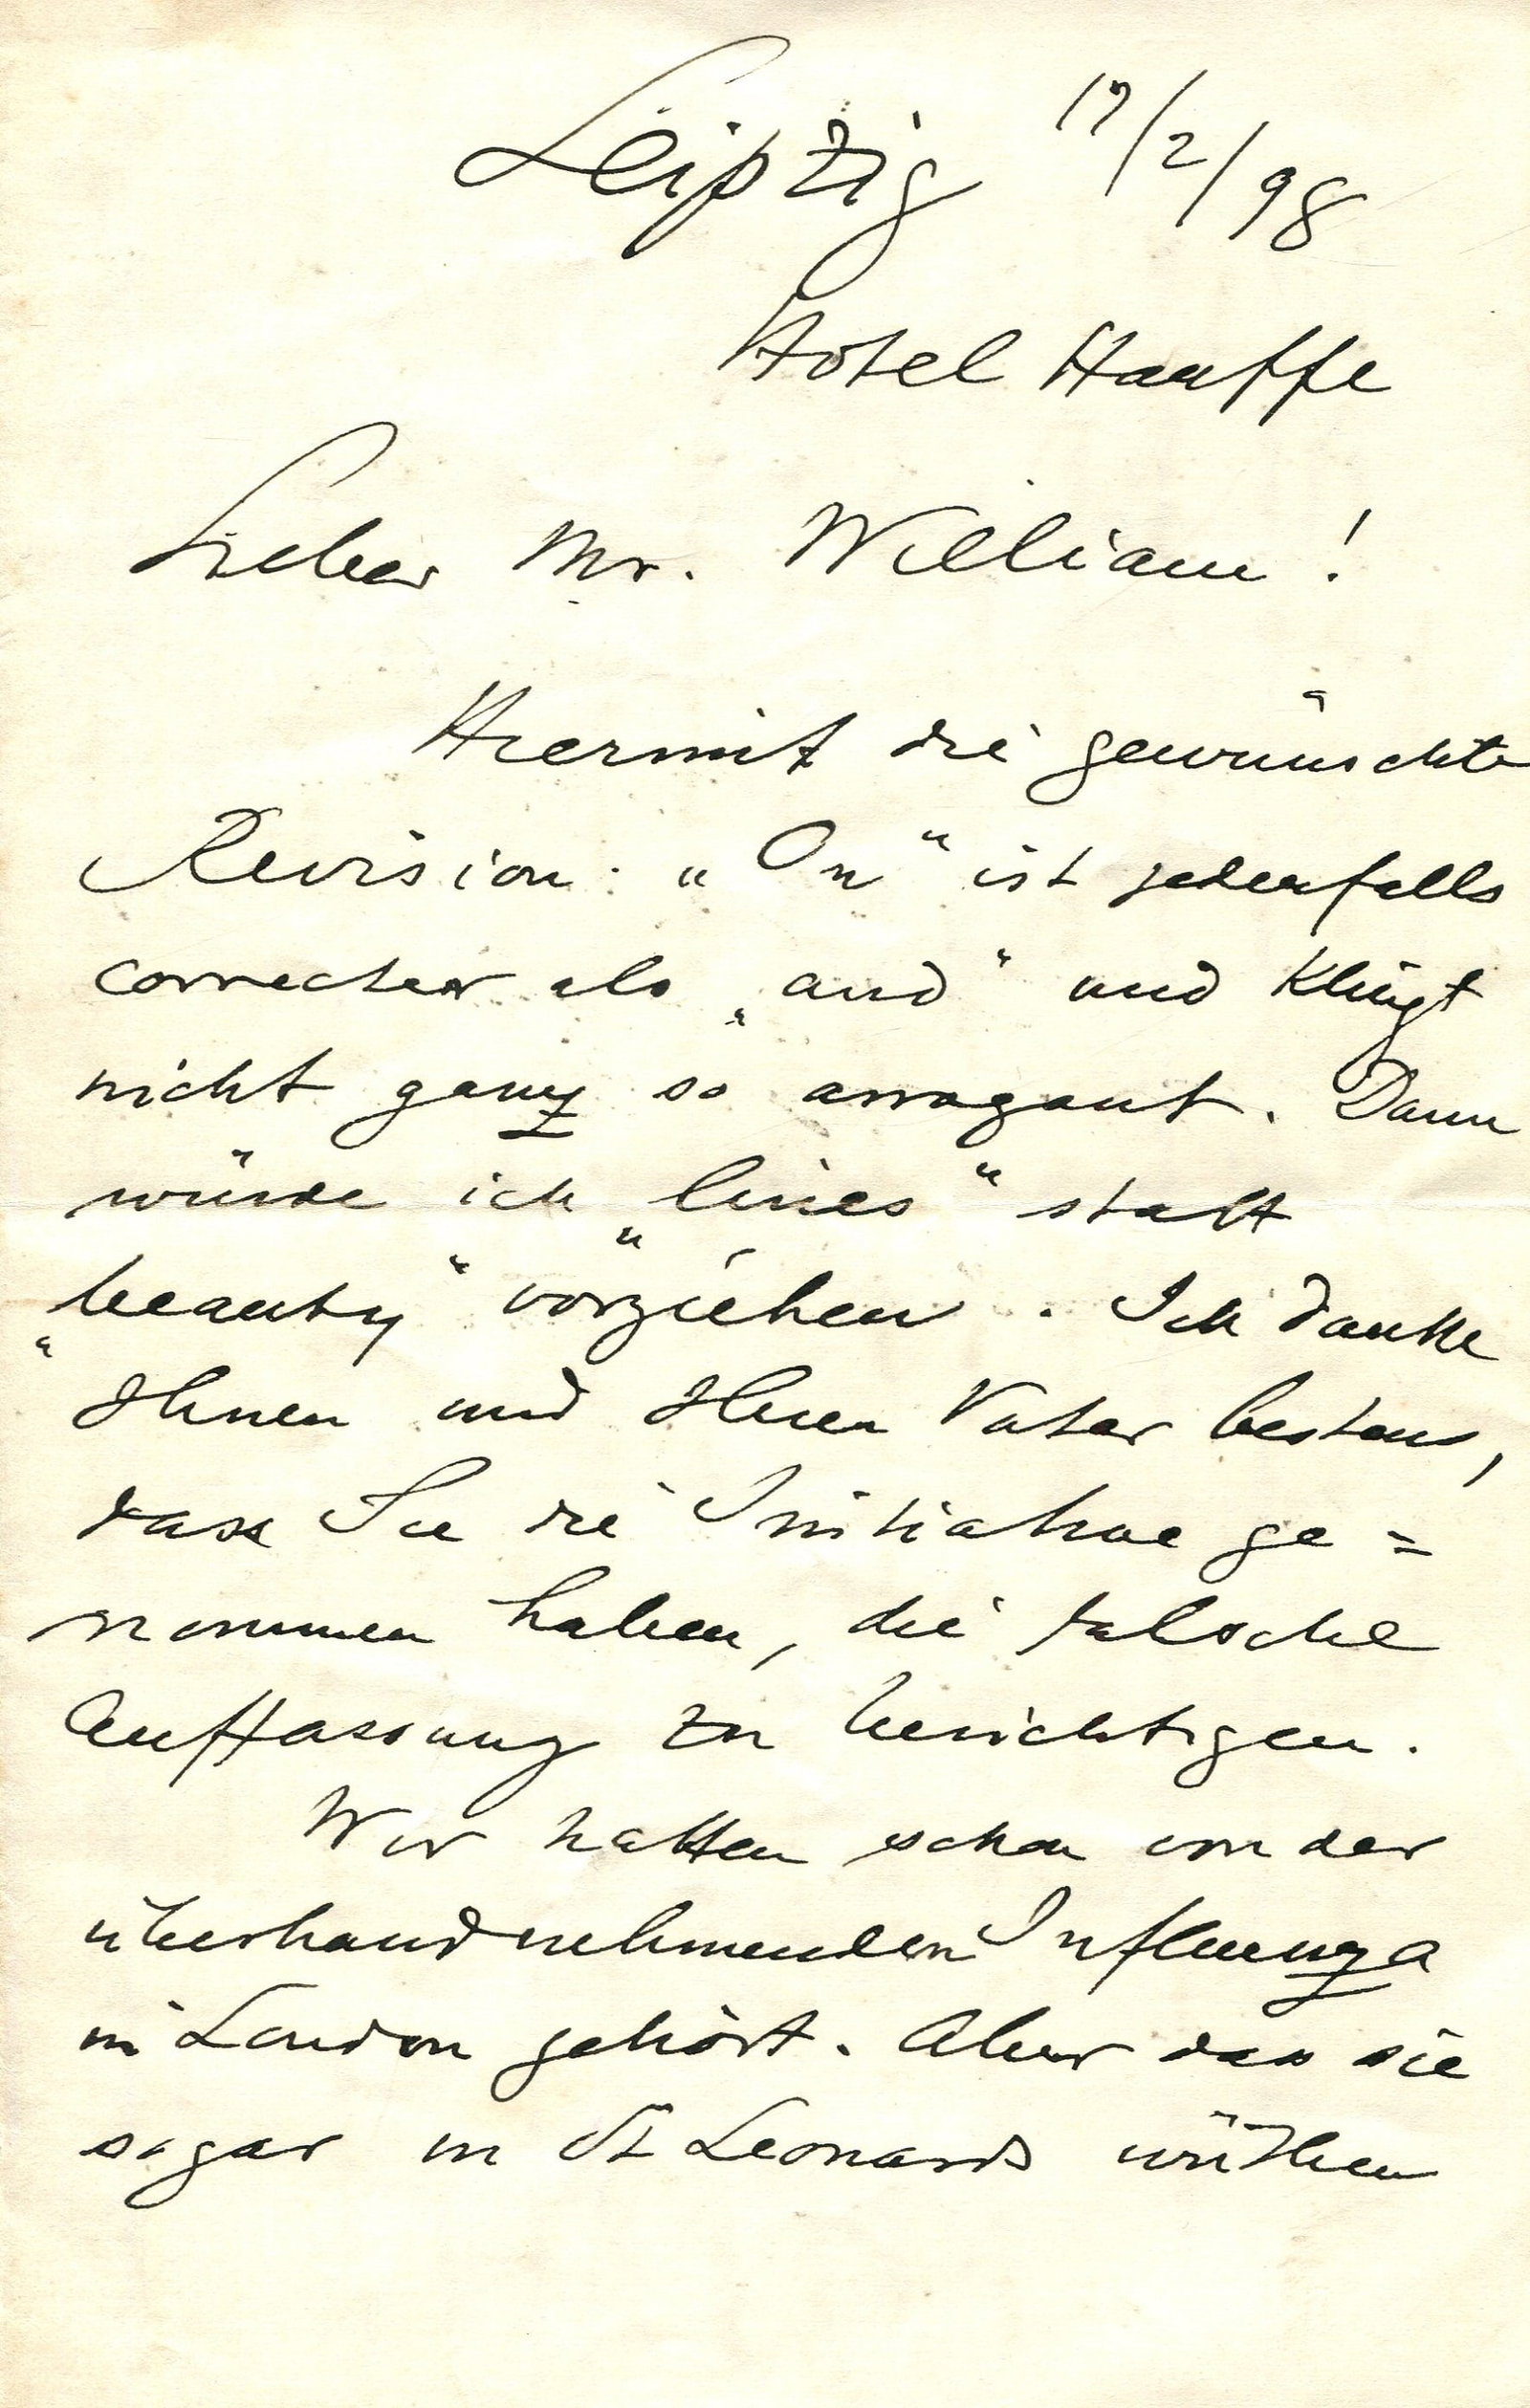 Leipzig 17/2/98
Hotel Hauffe
Lieber Mr. William!
Hiermit die gewünschte
Revision: „On“ ist jedenfalls
correcter als „and“ und klingt
nicht ganz so arrogant. Dann
würde ich „lines“ statt
„beauty“ vorziehen. Ich danke
Ihnen und Ihren Vater bestens,
dass Sie die Initiative ge=
nommen haben, die falsche
Auffassung zu berichtigen.
Wir hatten schon von der
überhandnehmenden Influenza
in London gehört. Aber dass sie
sogar in St Leonards wüthen